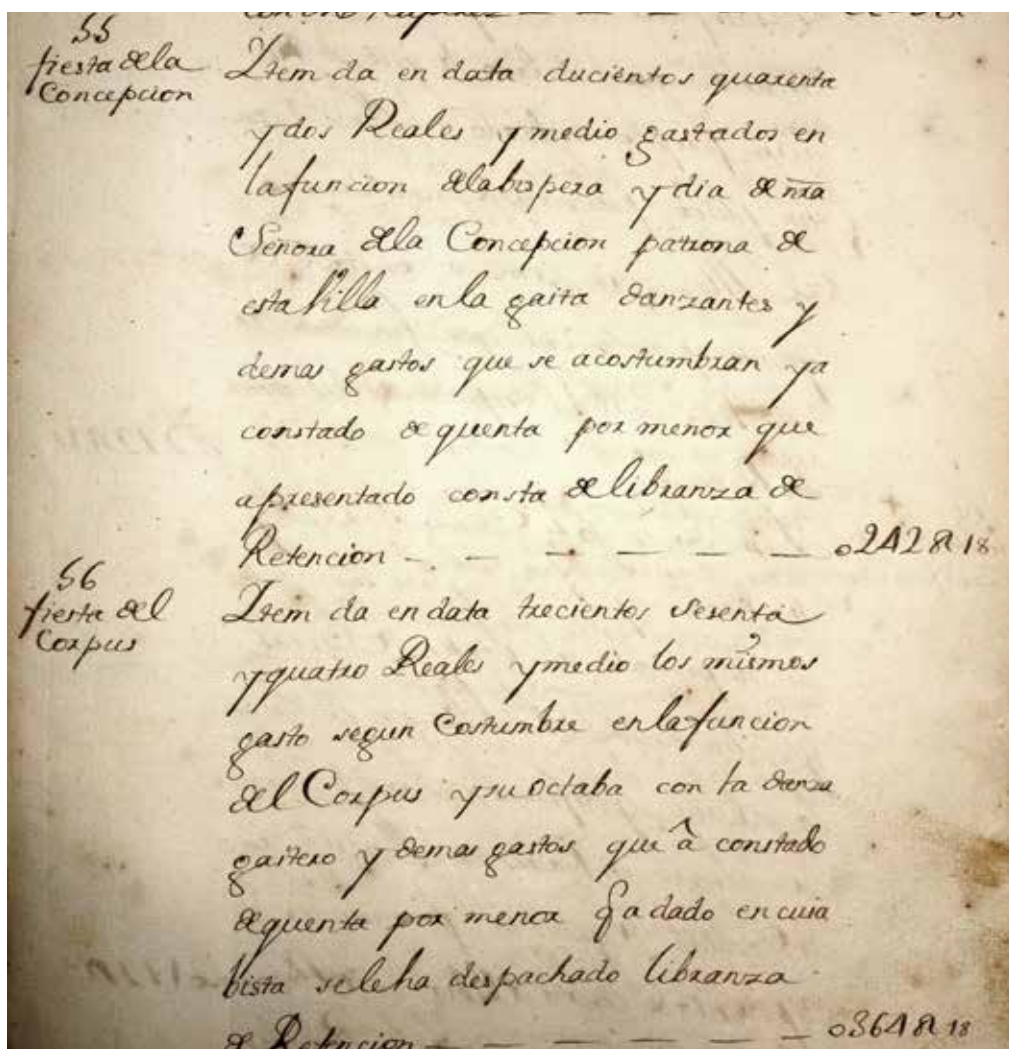 55
fiesta dela
Concepcion
Item da en data ducientos quarenta
y dos Reales y medio gastados en
lafuncion delabispera y dia de nra
Señora dela Concepcion patrona de
esta Villa enla gaita danzantes y
demas gastos que se acostumbran ya
constado de quenta por menor que
apresentado consta de libranza de
Retencion - - - - - - - 0242 R 18
56
fiesta del
Corpus
Item da en data trecientos sesenta
yquatro Reales ymedio los mismos
gasto segun Costumbre enlafuncion
del Corpus ysu octaba con la danza
gaitero y demas gastos que â constado
dequenta por menor q̃ a dado en cuia
bista sele ha despachado libranza
de Retencion - - - - - - - 0364 R 18